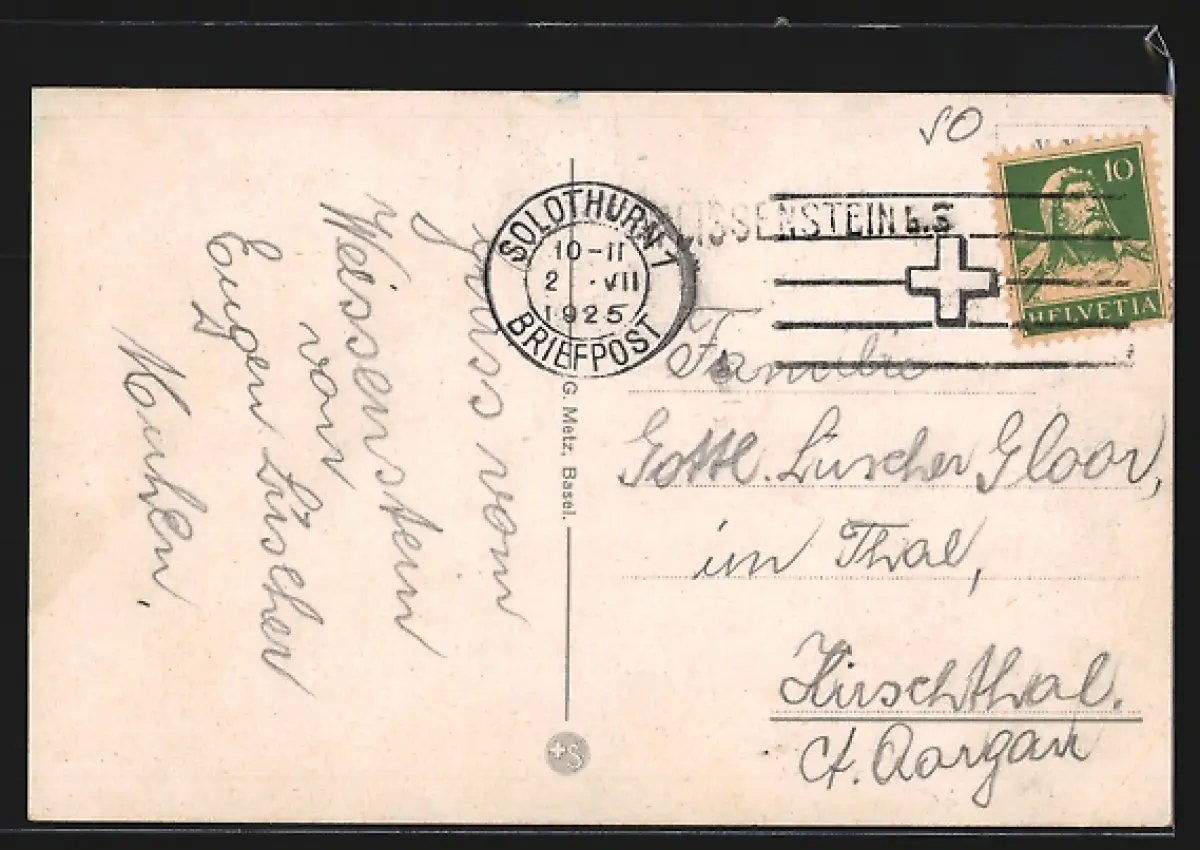 Gruss vom
Weissenstein
von
Eugen Lüscher
Muhen.
G. Metz, Basel.
+S
SOLOTHURN 1
10-11
2 . VII
1925
BRIEFPOST
WEISSENSTEIN b.S
SO
10
HELVETIA
Familie
Gottl. Lüscher Gloor,
im Thal,
Hirschthal.
Ct. Aargau